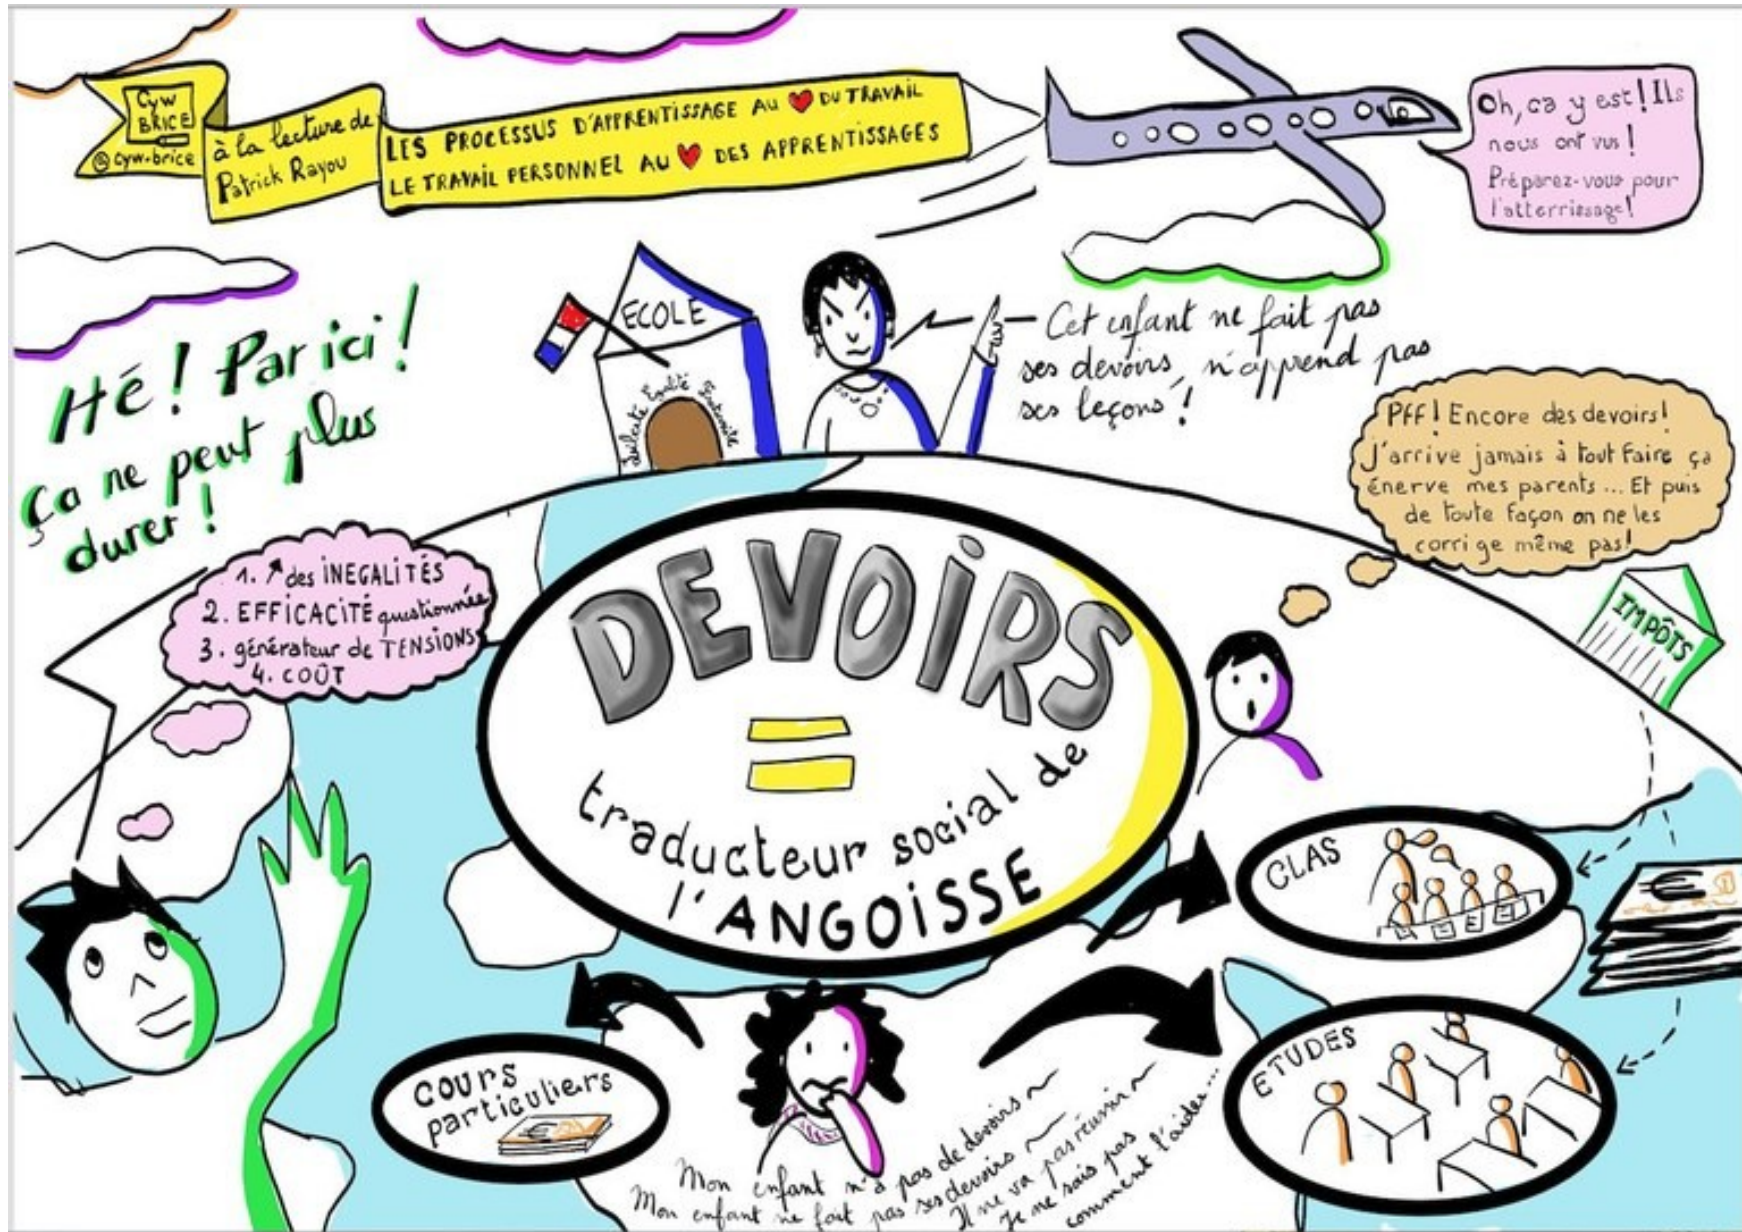 Cyw
BRICE
@cyw-brice
à la lecture de
Patrick Rayou
LES PROCESSUS D'APPRENTISSAGE AU ❤ DU TRAVAIL
LE TRAVAIL PERSONNEL AU ❤ DES APPRENTISSAGES
Oh, ca y est! Ils
nous ont vus!
Préparez-vous pour
l'atterrissage!
Hé! Par ici!
Ça ne peut plus
durer!
ECOLE
Liberté Egalité Fraternité
– Cet enfant ne fait pas
ses devoirs, n'apprend pas
ses leçons!
Pff! Encore des devoirs!
J'arrive jamais à tout faire ça
énerve mes parents... Et puis
de toute façon on ne les
corrige même pas!
1. ↗ des INEGALITÉS
2. EFFICACITÉ questionnée
3. générateur de TENSIONS
4. COÛT
IMPÔTS
DEVOIRS
=
traducteur social de
l'ANGOISSE
CLAS
€
ETUDES
COURS
particuliers
€
Mon enfant n'a pas de devoirs ~
Mon enfant ne fait pas ses devoirs ~
Il ne va pas réussir ~
Je ne sais pas
comment l'aider...